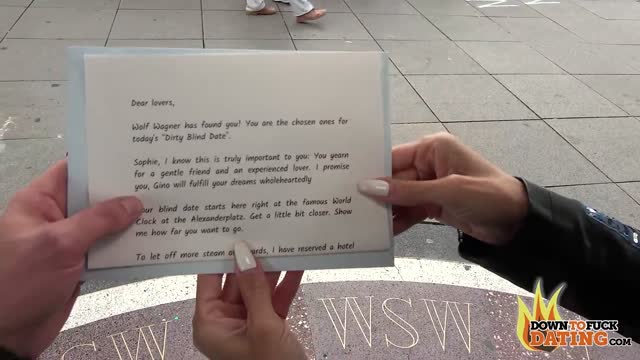 Dear lovers,
Wolf Wagner has found you! You are the chosen ones for
today's "Dirty Blind Date".
Sophie, I know this is truly important to you: You yearn
for a gentle friend and an experienced lover. I promise
you, Gino will fulfill your dreams wholeheartedly
our blind date starts here right at the famous World
Clock at the Alexanderplatz. Get a little bit closer. Show
me how far you want to go.
To let off more steam I have reserved a hotel
SW WSW
DOWNTOFUCK
DATING.COM